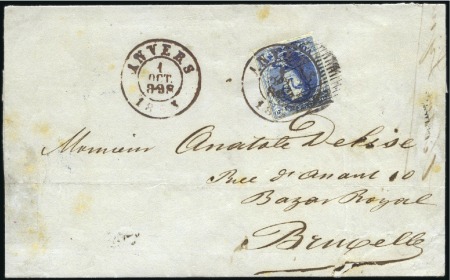 ANVERS
1
OCT.
Monsieur Anatole Delise
Rue d'anant 10
Bazar Royal
Bruxelles